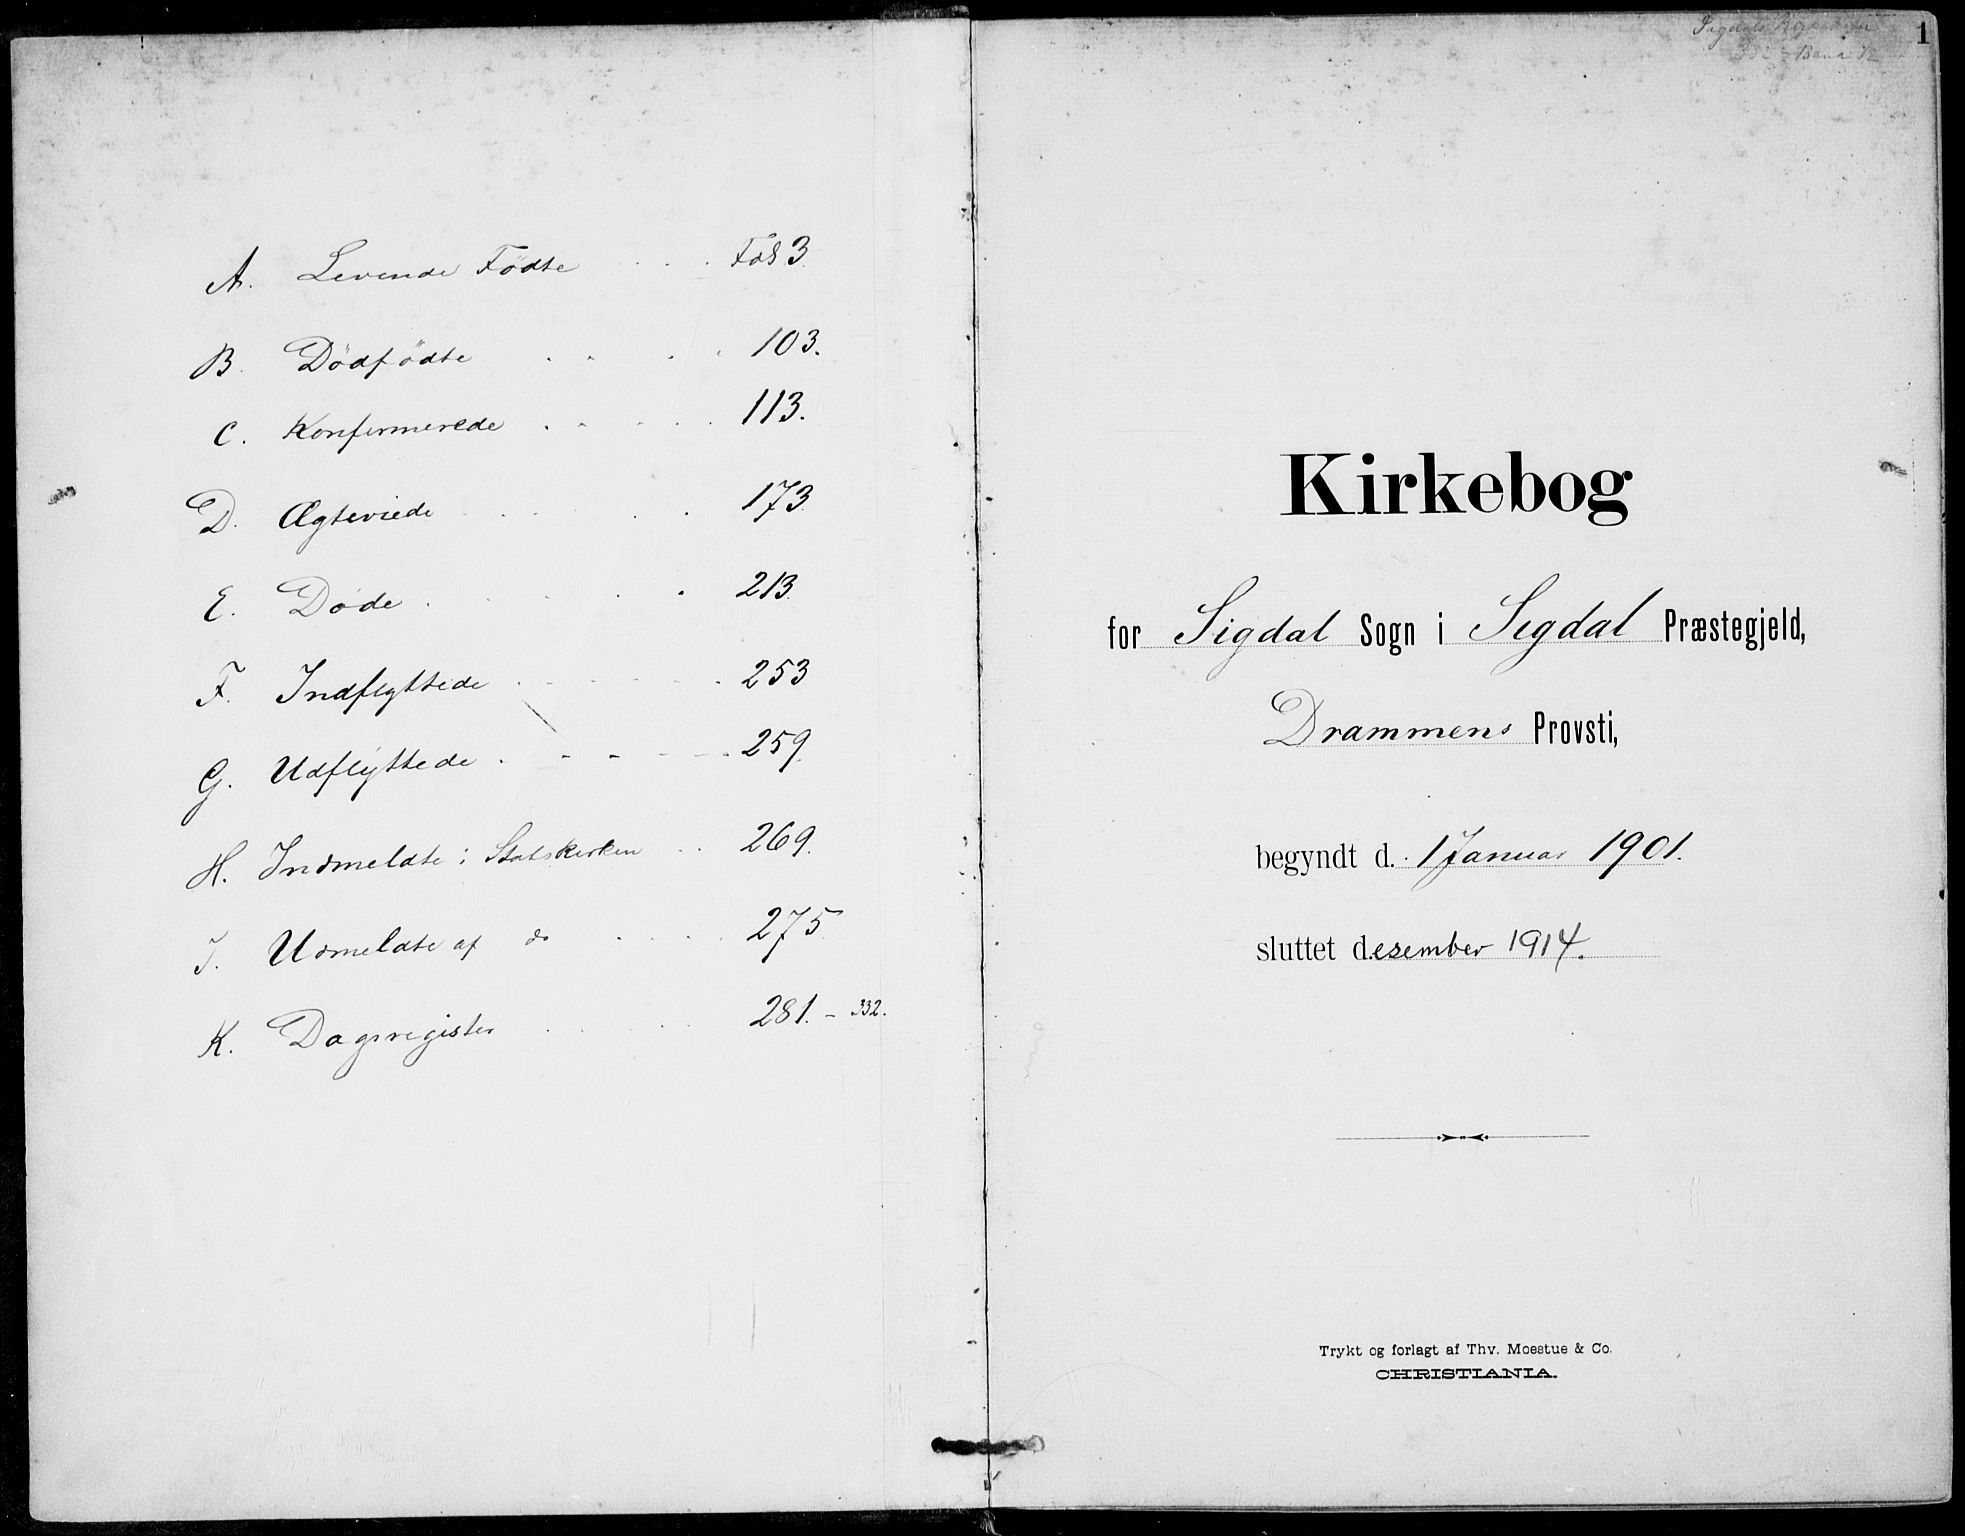 A. Levende Födte . . . Fol 3.
B. Dödfödte . . . . 103.
C. Konfirmerede . . . . . 113.
D. Ægteviede . . . . . 173.
E. Døde . . . . . 213.
F. Indflyttede . . . . . 253
G. Udflyttede . - - - - 259.
H. Indmeldte i Statskirken . . 269.
I. Udmeldte af do . . . . 275.
K. Dagsregister . . . . 281. - 332.
1
Kirkebog
for Sigdal Sogn i Sigdal Præstegjeld,
Drammens Provsti,
begyndt d. 1 Januar 1901.
sluttet desember 1914.
Trykt og forlagt af Thv. Moestue & Co.
CHRISTIANIA.